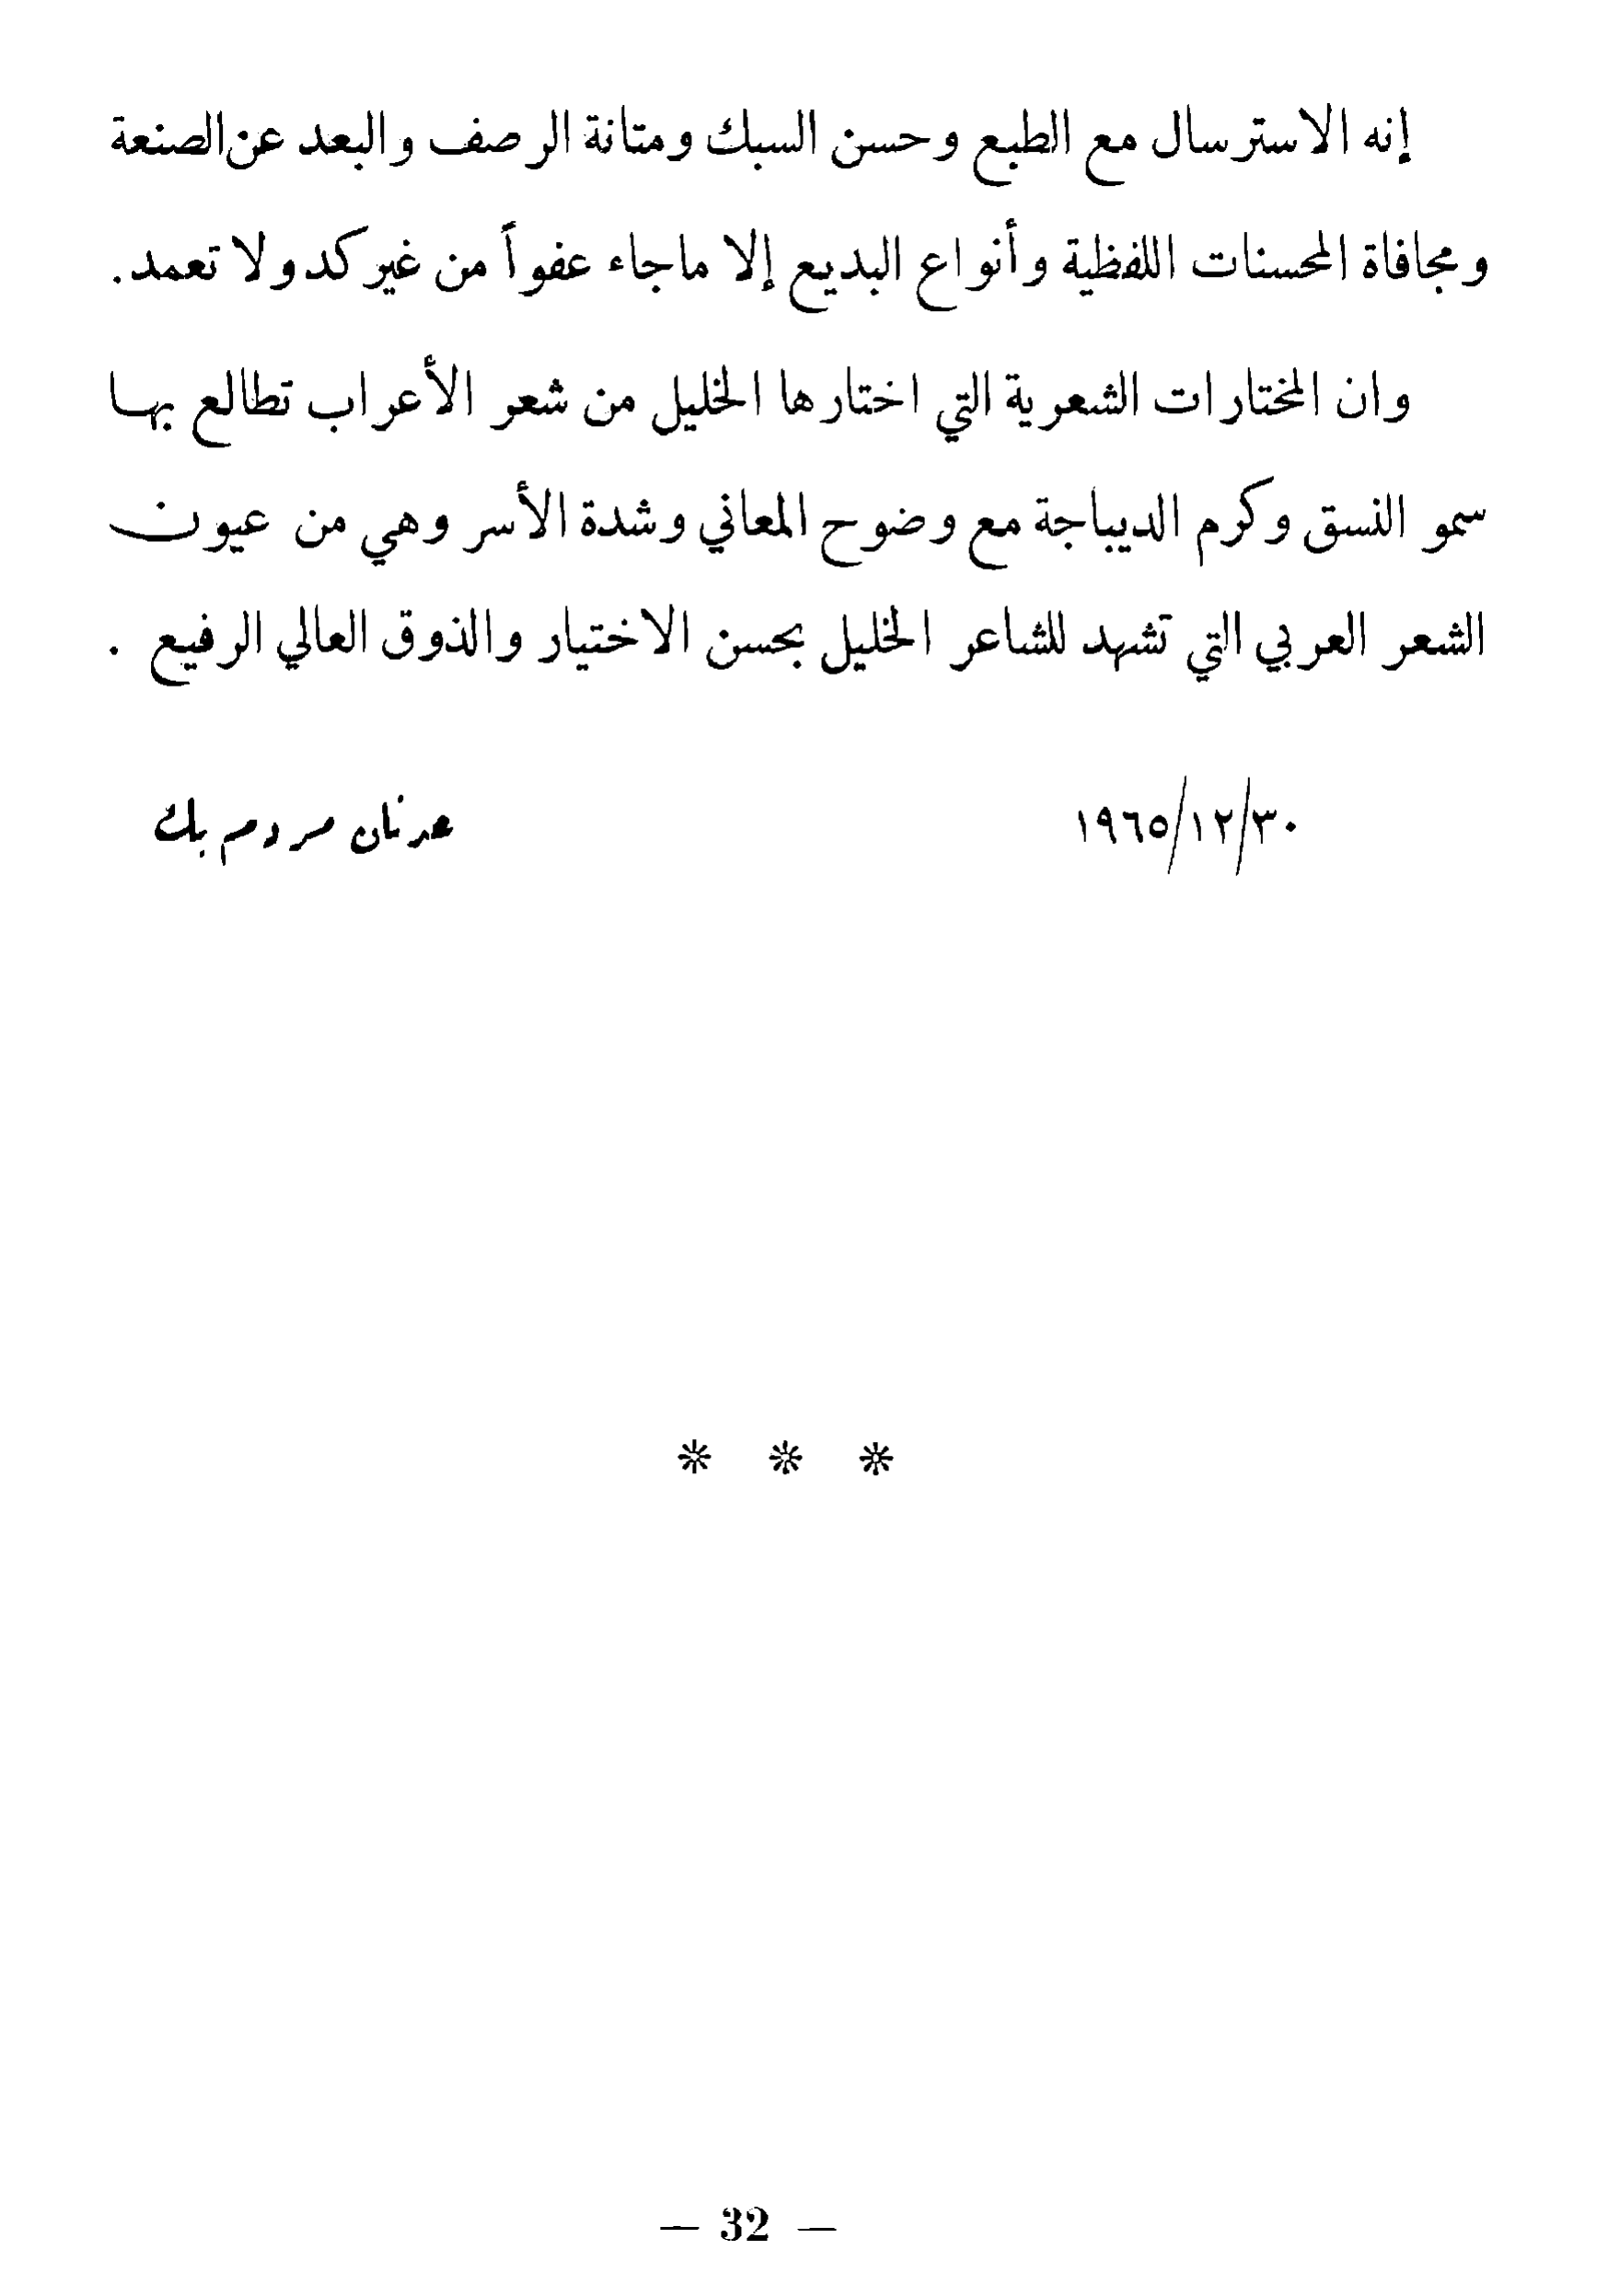 إنه الاسترسال مع الطبع وحسن السبك ومتانة الرصف والبعد عن الصنعة
ومجافاة المحسنات اللفظية وأنواع البديع إلا ماجاء عفواً من غير كد ولا تعمد .
وان المختارات الشعرية التي اختارها الخليل من شعر الأعراب تطالع بها
سمو النسق وكرم الديباجة مع وضوح المعاني وشدة الأسر وهي من عيون
الشعر العربي التي تشهد للشاعر الخليل بحسن الاختيار والذوق العالي الرفيع .
١٩٦٥/١٢/٣٠ عدنان مردم بك
* * *
— 32 —